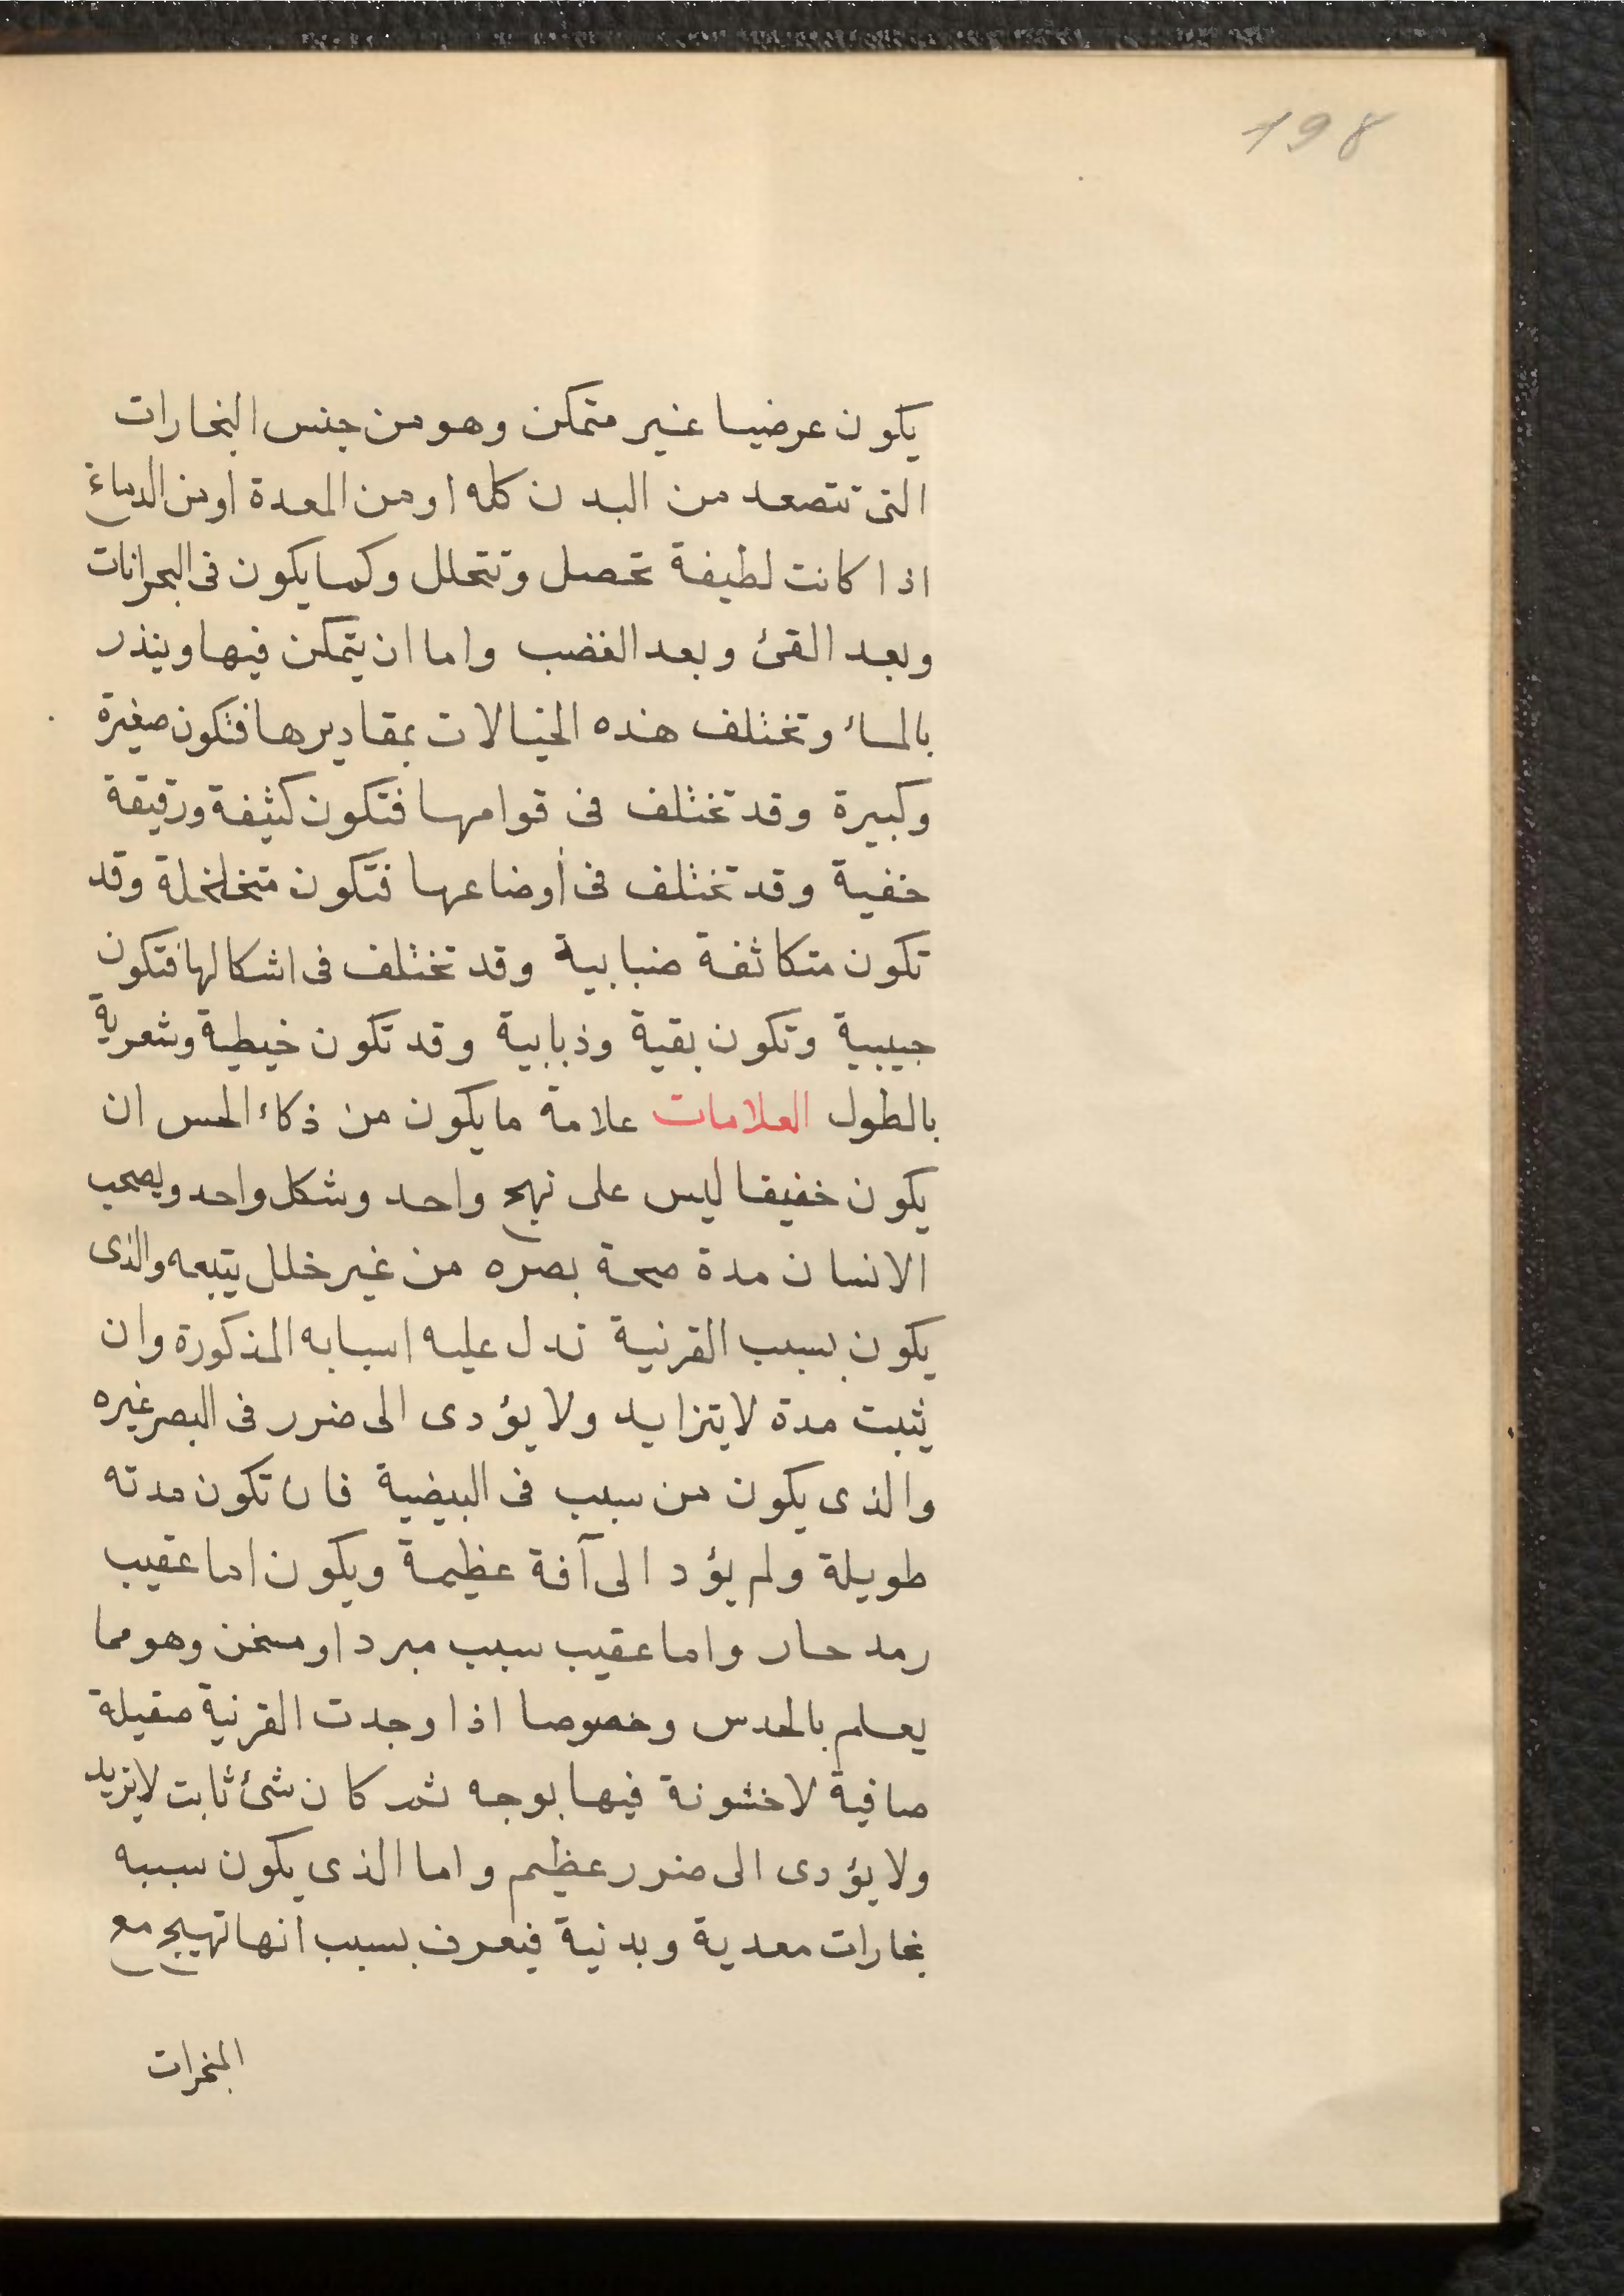 198
يكون عرضيا غير متمكن وهو من جنس البخارات
التى تتصعد من البدن كله او من المعدة او من الدماغ
اذا كانت لطيفة تحصل وتتحلل وكما يكون فى البحرانات
وبعد القئ وبعد الغضب واما ان يتمكن فيها وينذر
بالماء وتختلف هذه الخيالات بمقاديرها فتكون صغيرة
وكبيرة وقد تختلف فى قوامها فتكون كثيفة ورقيقة
خفية وقد تختلف فى أوضاعها فتكون متخلخلة وقد
تكون متكاثفة ضبابية وقد تختلف فى اشكالها فتكون
حبيبية وتكون بقية وذبابية وقد تكون خيطية وشعرية
بالطول العلامات علامة ما يكون من ذكاء الحس ان
يكون خفيفا ليس على نهج واحد وشكل واحد ويصحب
الانسان مدة صحة بصره من غير خلل يتبعه والذى
يكون بسبب القرنية تدل عليه اسبابه المذكورة وان
يثبت مدة لا يتزايد ولا يؤدى الى ضرر فى البصر غيره
والذى يكون من سبب فى البيضية فان تكون مدته
طويلة ولم يؤد الى آفة عظيمة ويكون اما عقيب
رمد حار واما عقيب سبب مبرد او مسخن وهو مما
يعلم بالحدس وخصوصا اذا وجدت القرنية صقيلة
صافية لا خشونة فيها بوجه ثم كان شئ ثابت لا يزيد
ولا يؤدى الى ضرر عظيم واما الذى يكون سببه
بخارات معدية وبدنية فيعرف بسبب انها تهيج مع
المبخرات